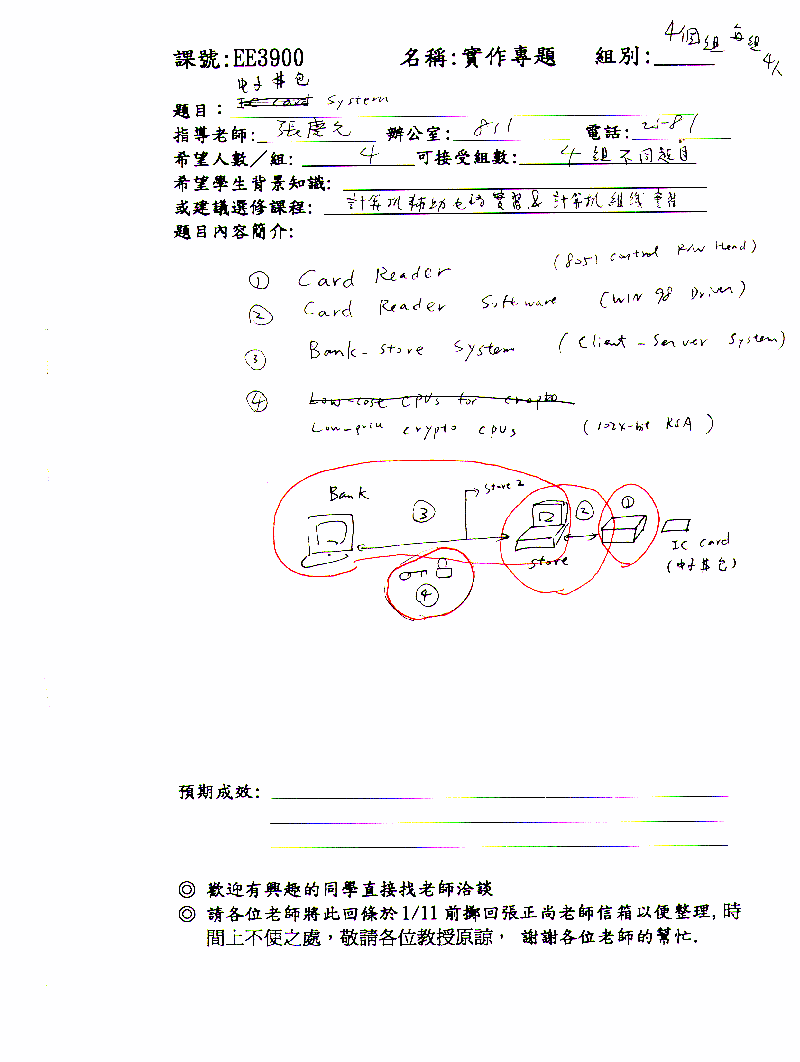 4個組 每組
4人
課號:EE3900 名稱:實作專題 組別:
电子荷包
題目: IC card System
指導老師: 張慶元 辦公室: 851 電話:
希望人數/組: 4 可接受組數: 4 組不同題目
希望學生背景知識:
或建議選修課程: 計算机輔助 實習 & 計算机組織 實習
題目內容簡介:
① Card Reader (8051 control R/W Head)
② Card Reader Software (WIN 98 Driver)
③ Bank-store System (Client-Server System)
④ Low-cost CPUs for crypto
Low-price crypto CPUs (1024-bit RSA)
Bank ③ store 2 ② ①
IC card
store (电子荷包)
④
預期成效:
◎ 歡迎有興趣的同學直接找老師洽談
◎ 請各位老師將此回條於1/11前擲回張正尚老師信箱以便整理, 時
間上不便之處,敬請各位教授原諒, 謝謝各位老師的幫忙.